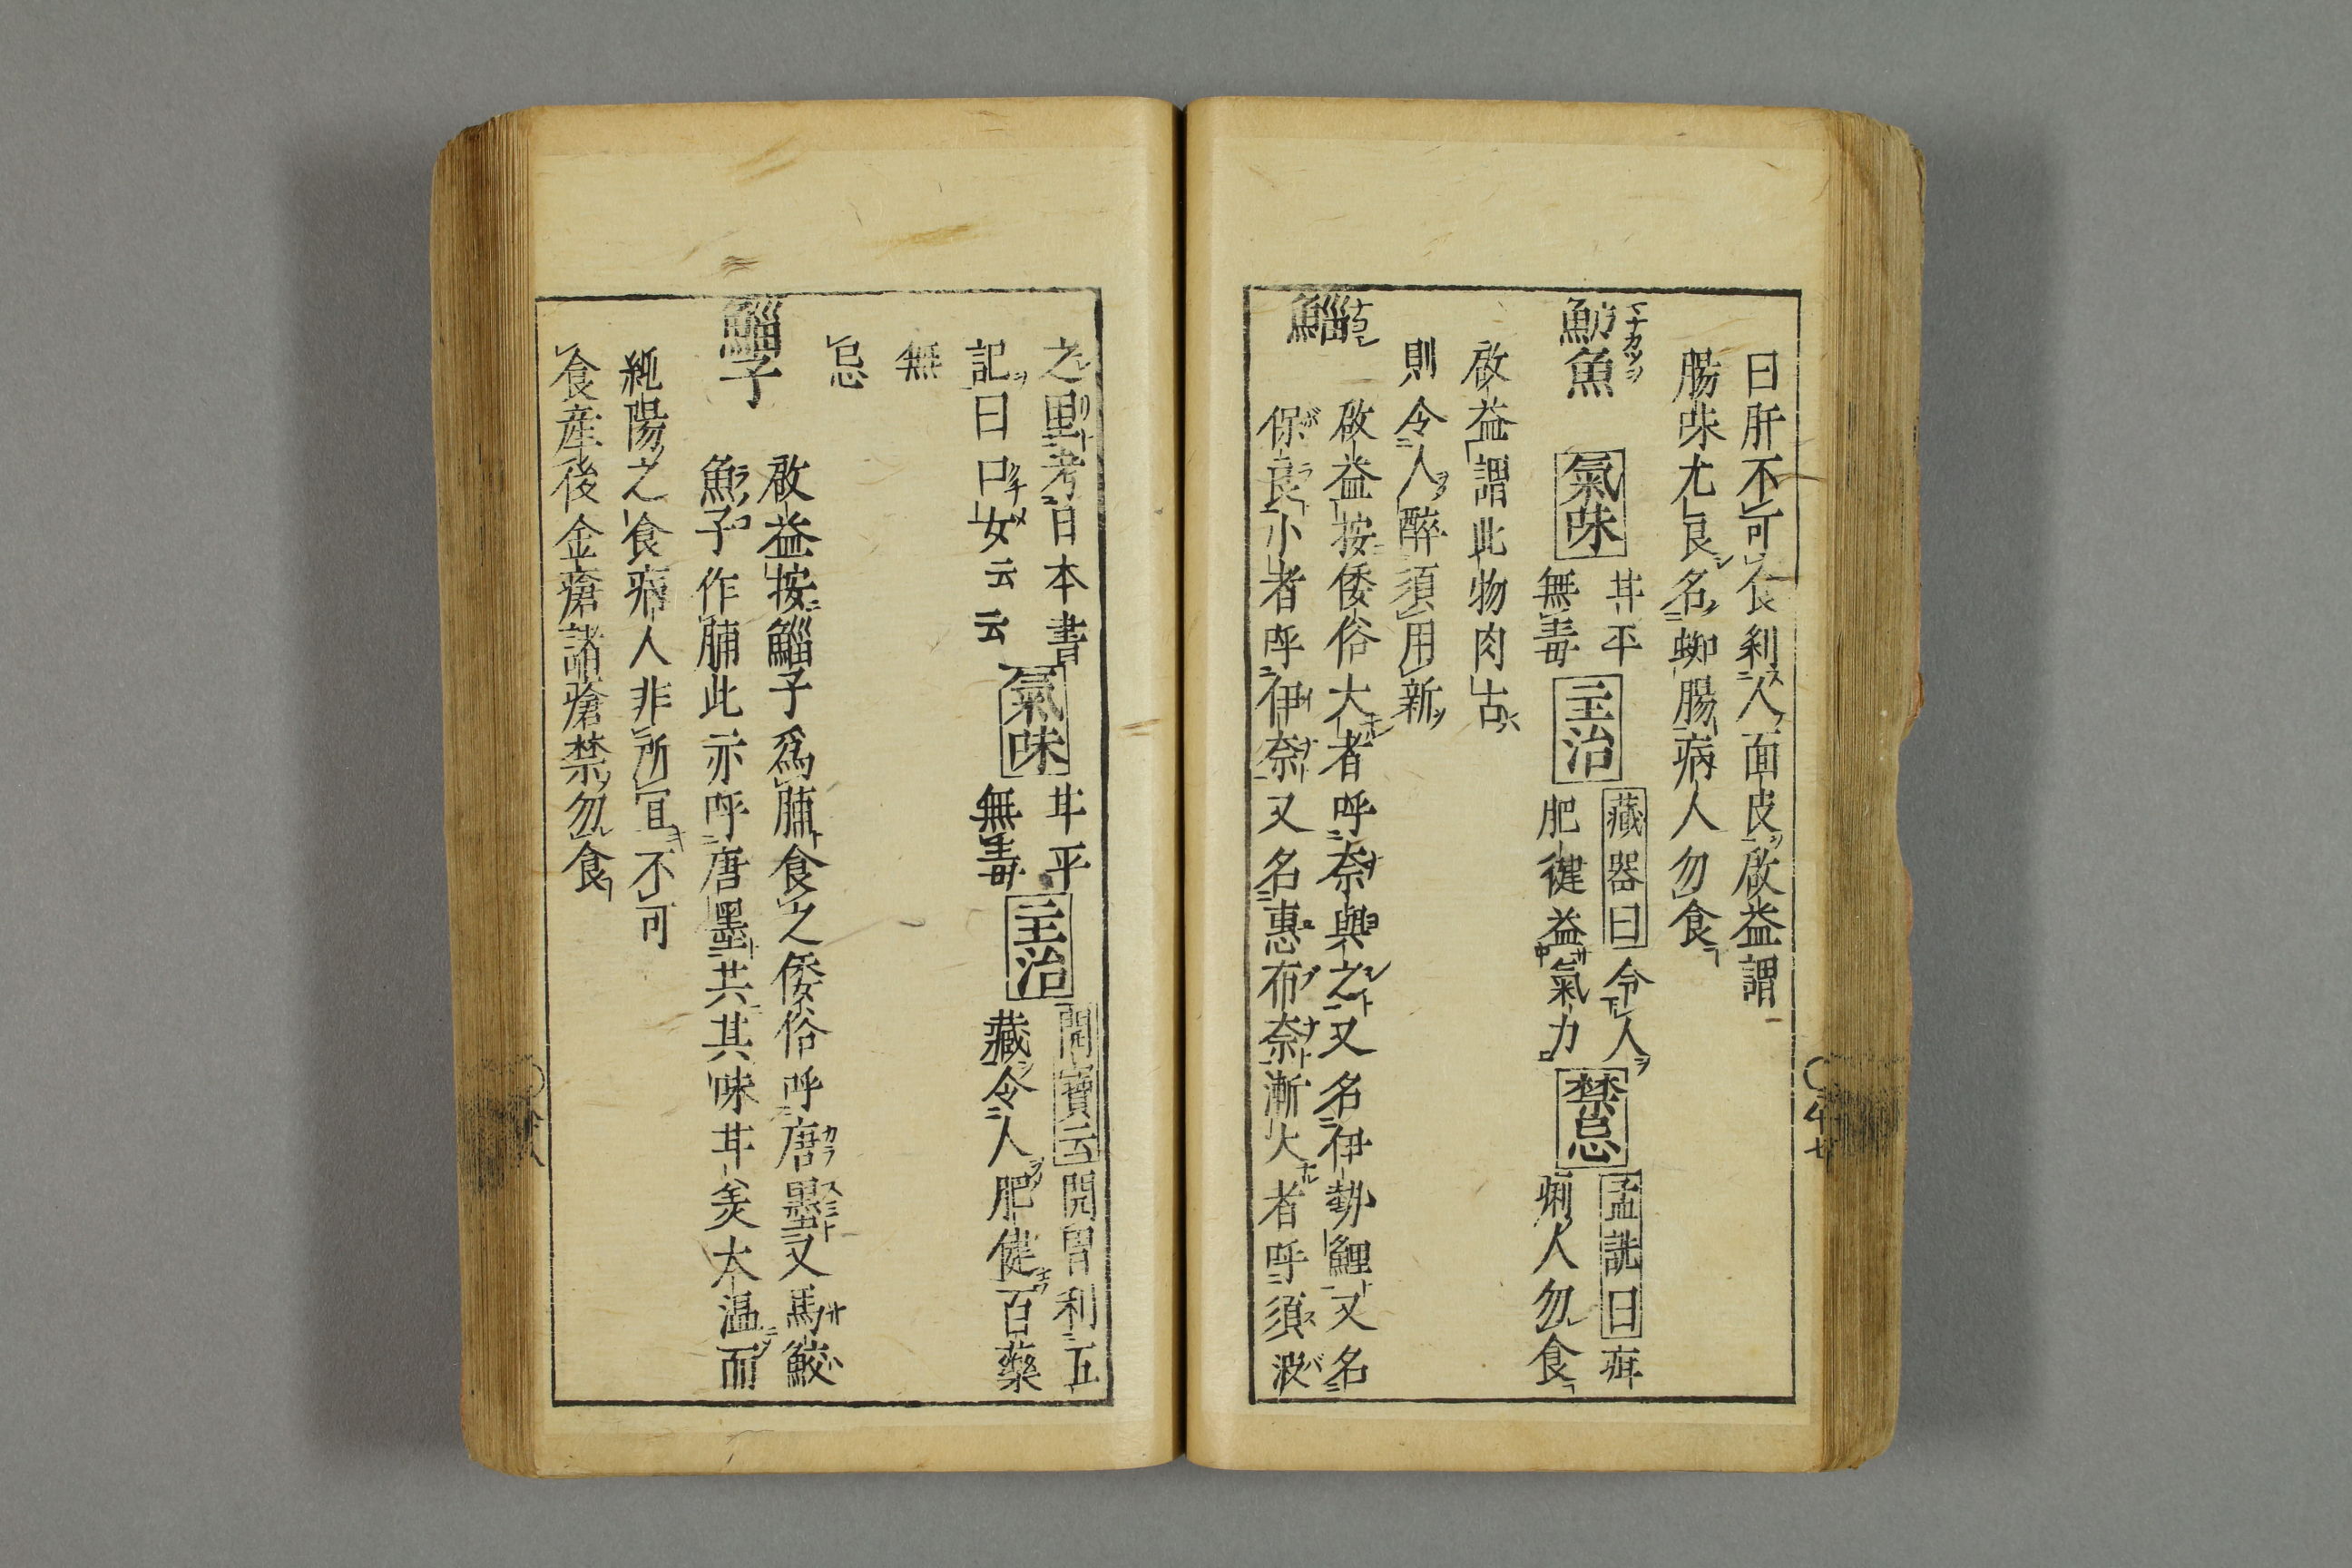 曰肝不可食利人面皮啟益謂
腸味尤良名蜘腸病人勿食
魴魚 氣味 甘平
無毒 主治 藏器曰 令人
肥健益氣力 禁忌 孟詵曰 疳
痢人勿食
啟益謂此物肉古
則令人醉須用新
鯔
啟益按倭俗大者呼奈與之又名伊勢鯉又名
保良小者呼伊奈又名惠布奈漸大者呼須波
之里考日本書 氣味 甘平
記曰口女云云 無毒 主治 開寶云 開胃利五
藏令人肥健百藥
無
忌
鯔子
啟益按鯔子爲脯食之倭俗呼唐墨又馬鮫
魚子作脯此亦呼唐墨共其味甘美大温而
純陽之食病人非所宜不可
食産後金瘡諸瘡禁勿食